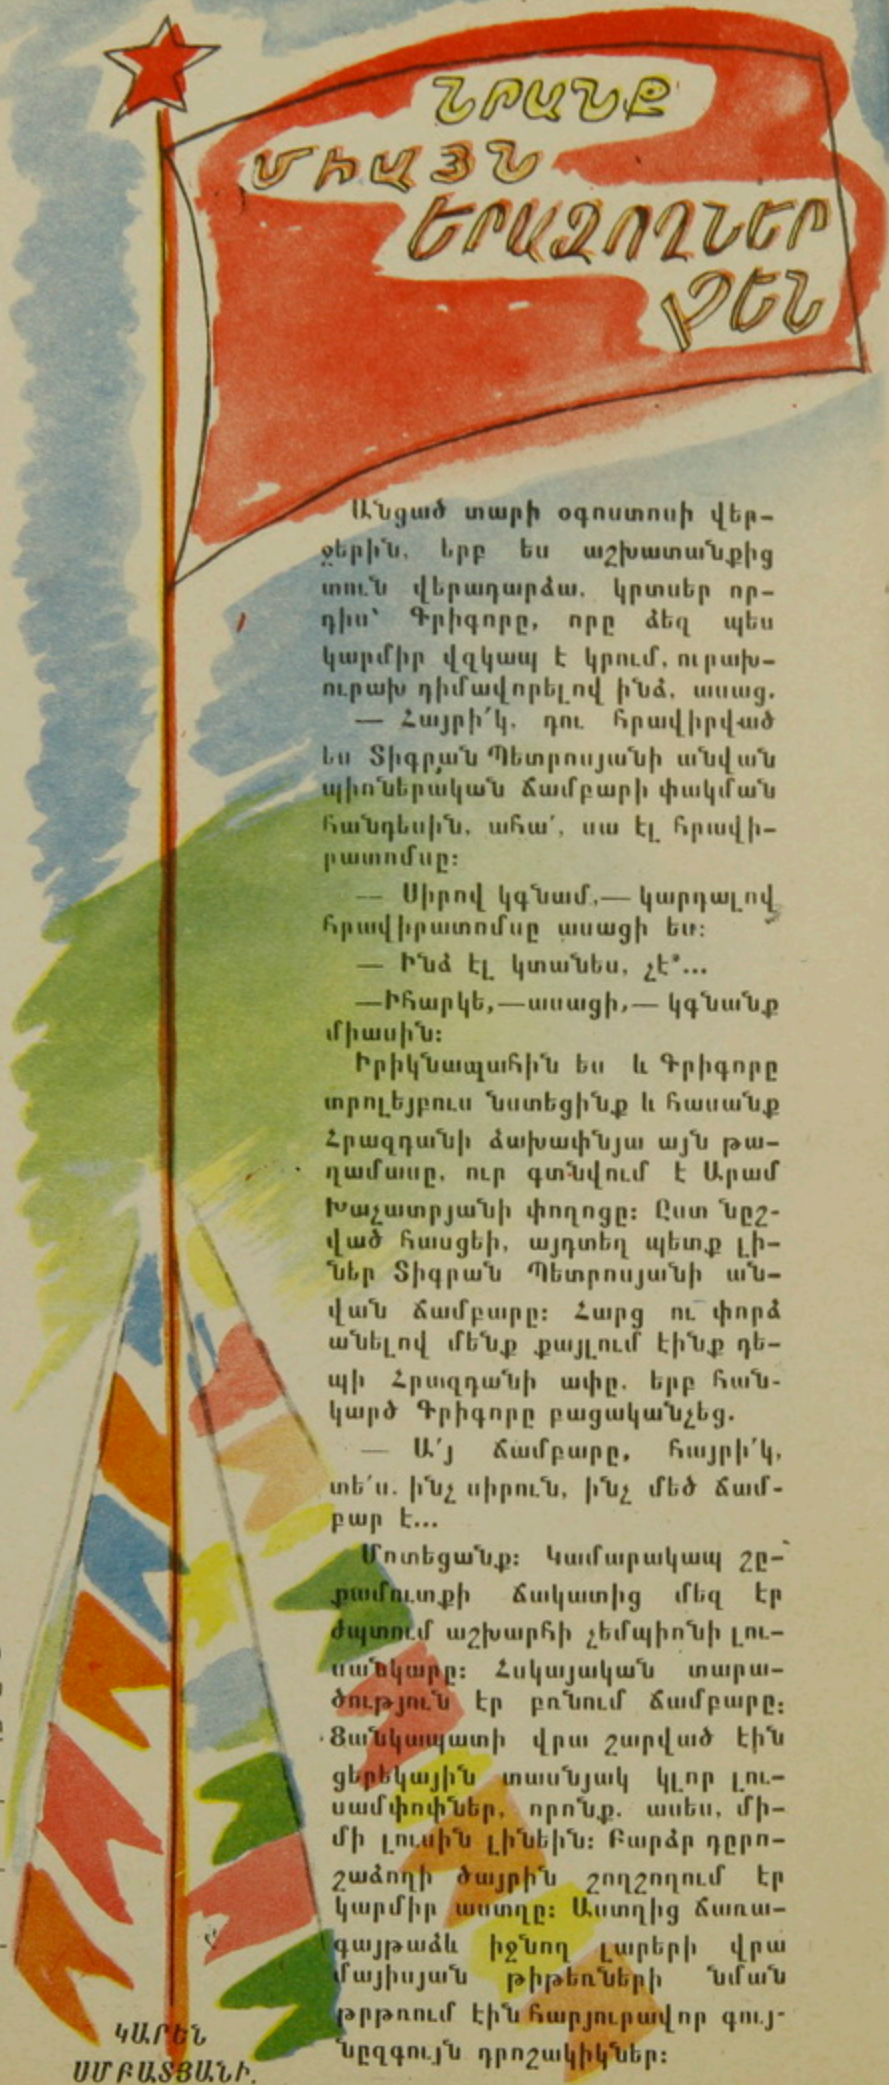 ՆՐԱՆՔ
ՄԻԱՅՆ
ԵՐԱԶՈՂՆԵՐ
ՉԵՆ
Անցած տարի օգոստոսի վեր-
ջերին, երբ ես աշխատանքից
տուն վերադարձա, կրտսեր որ-
դիս՝ Գրիգորը, որը ձեզ պես
կարմիր վզկապ է կրում, ուրախ-
ուրախ դիմավորելով ինձ, ասաց.
— Հայրի՛կ, դու հրավիրված
ես Տիգրան Պետրոսյանի անվան
պիոներական ճամբարի փակման
հանդեսին, ահա՛, սա էլ հրավի-
րատոմսը:
— Սիրով կգնամ,— կարդալով
հրավիրատոմսը ասացի ես:
— Ինձ էլ կտանես, չէ՞...
—Իհարկե,—ասացի,— կգնանք
միասին:
Իրիկնապահին ես և Գրիգորը
տրոլեյբուս նստեցինք և հասանք
Հրազդանի ձախափնյա այն թա-
ղամասը, ուր գտնվում է Արամ
Խաչատրյանի փողոցը: Ըստ նըշ-
ված հասցեի, այդտեղ պետք լի-
ներ Տիգրան Պետրոսյանի ան-
վան ճամբարը: Հարց ու փորձ
անելով մենք քայլում էինք դե-
պի Հրազդանի ափը, երբ հան-
կարծ Գրիգորը բացականչեց.
— Ա՛յ ճամբարը, հայրի՛կ,
տե՛ս. ինչ սիրուն, ինչ մեծ ճամ-
բար է...
Մոտեցանք: Կամարակապ շը-
քամուտքի ճակատից մեզ էր
ժպտում աշխարհի չեմպիոնի լու-
սանկարը: Հսկայական տարա-
ծություն էր բռնում ճամբարը:
Ցանկապատի վրա շարված էին
ցերեկային տասնյակ կլոր լու-
սամփոփներ, որոնք. ասես, մի-
մի լուսին լինեին: Բարձր դըրո-
շաձողի ծայրին շողշողում էր
կարմիր աստղը: Աստղից ճառա-
գայթաձև իջնող լարերի վրա
մայիսյան թիթեռների նման
թրթռում էին հարյուրավոր գույ-
նըզգույն դրոշակիկներ:
ԿԱՐԵՆ
ՍՄԲԱՏՅԱՆԻ.